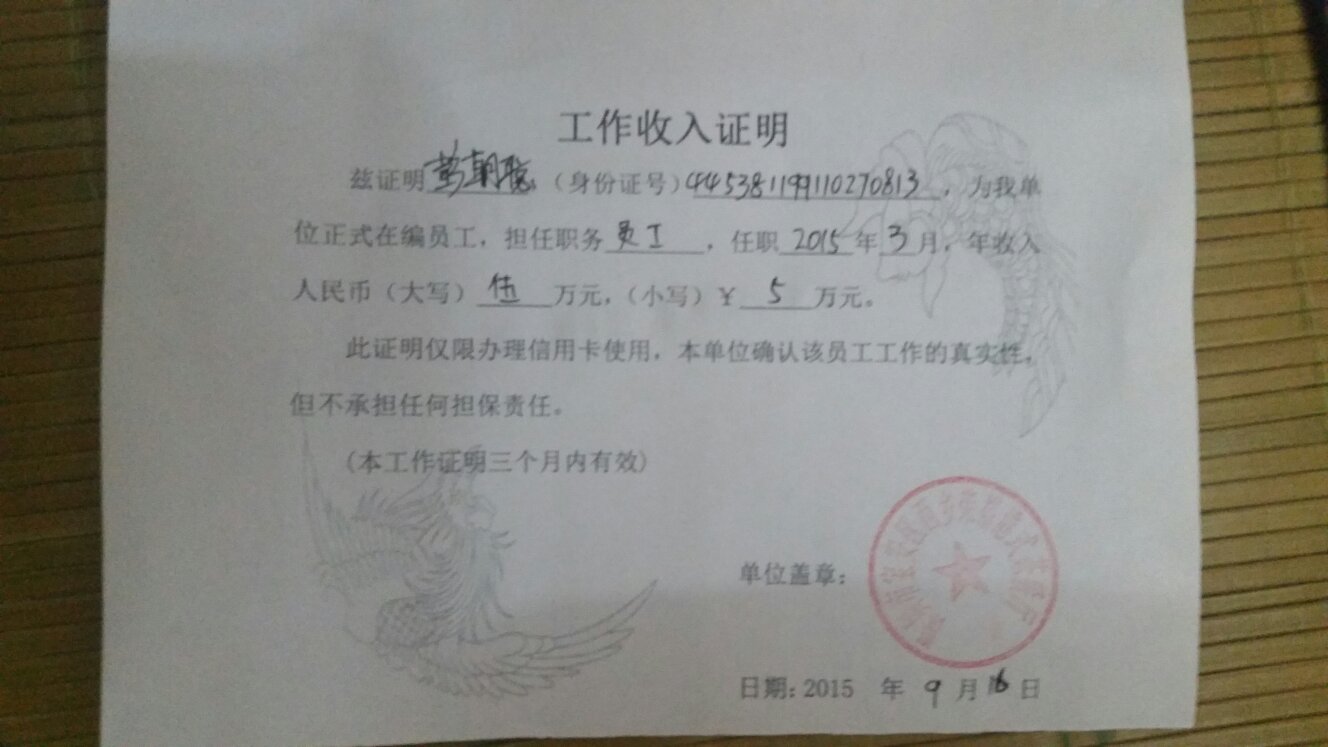 工作收入证明
兹证明 朝聪 (身份证号) 445381199110270813 ,为我单
位正式在编员工,担任职务 员工 ,任职 2015 年 3 月,年收入
人民币(大写) 伍 万元,(小写)¥ 5 万元。
此证明仅限办理信用卡使用,本单位确认该员工工作的真实性,
但不承担任何担保责任。
(本工作证明三个月内有效)
单位盖章:
日期:2015 年 9 月 16 日